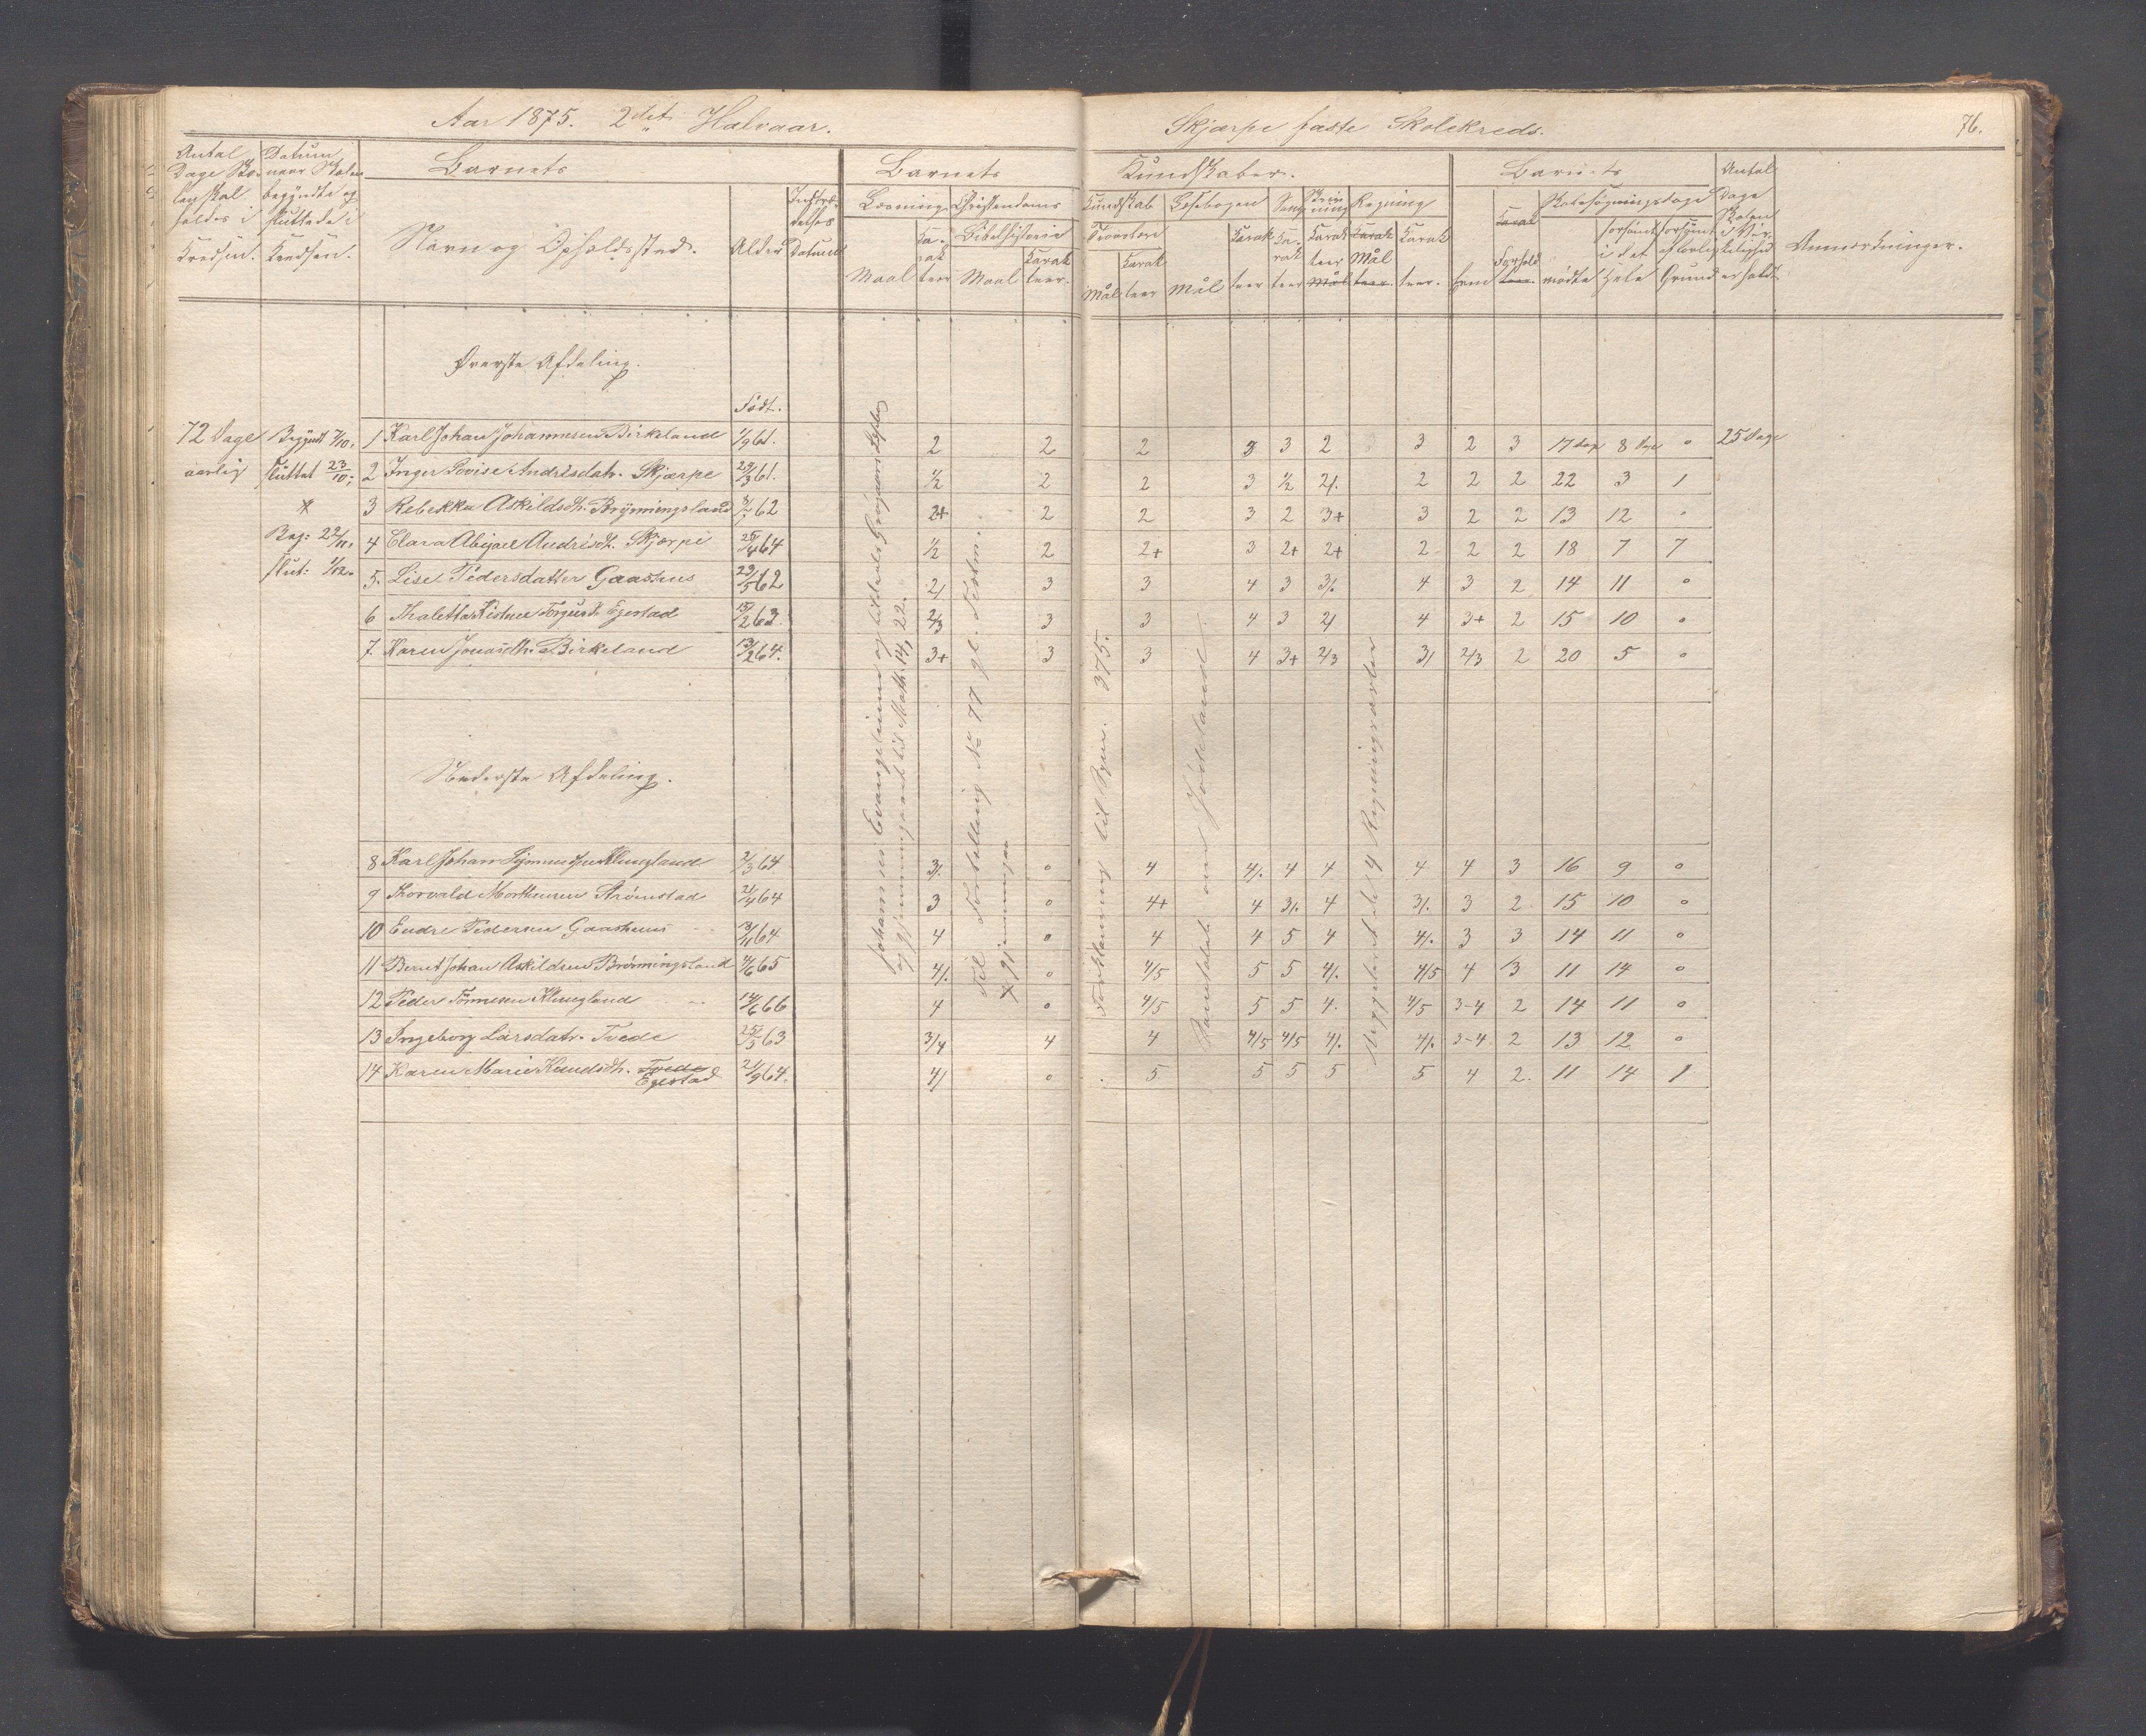 Aar 1875. 2det Halvaar.
Skjærpe faste Skolekreds.
76.
Antal Dage Skolen skal holdes i Kredsen.
Datum naar Skolen begyndte og sluttede i Kredsen.
Barnets
Navn og Opholdssted.
Alder
Indtrædelses Datum
Barnets
Kundskaber.
Læsning
Maal
Karakteer
Christendoms
Bibelhistorie
Maal
Karakteer.
Kundskab
Troeslære
Mål
Karakteer
Læsebogen
Mål
Karakteer
Sang
Karakteer
Skrivning
Karakteer
Mål
Regning
Karak
Mål
teer.
Karakteer.
Barnets
Evne
Karak
Forhold
teer.
Skolesøgningsdage
mødte
forsømt i det Hele
forsømt af lovlig Grund
Antal Dage Skolen i Virkelighed er holdt
Anmærkninger.
Øverste Afdeling.
Født.
72 Dage aarlig
Begyndt 7/10,
sluttet 23/10;
Beg: 22/11,
slut: 1/12.
1 Karl Johan Johannesen Birkeland 1/9 61. 2 2 2 3 3 2 3 2 3 17 dage 8 dage 0 25 Dage
2 Inger Lovise Andrésdatr. Skjærpe 29/3 61. 1/2 2 2 3 1/2 2/. 2 2 2 22 3 1
3 Rebekka Askildsdh. Brynningsland 62 2+ 2 2 3 2 3+ 3 2 2 13 12 0
4 Clara Abigael Andrésdh. Skjærpe 25/4 64 1/2 2 2+ 3 2+ 2+ 2 2 2 18 7 7
5. Lise Pedersdatter Gaashus 29/5 62 2/ 3 3 4 3 3/. 4 3 2 14 11 0
6 Thaletta Egestad 15/2 63. 2/3 3 3 4 3 2/ 4 3+ 2 15 10 0
7. Karen Jonasdh. Birkeland 13/2 64. 3+ 3 3 4 3+ 2/3 3/ 2/3 2 20 5 0
Nederste Afdeling.
8 Karl Johan Klungland 2/3 64 3/. 0 4 4/. 4 4 4 4 3 16 9 0
9 Thorvald Morthensen Strømstad 21/4 64 3 0 4+ 4 3/. 4 3/. 3 2 15 10 0
10 Endre Pedersen Gaashuus 13/11 64 4 0 4 4 5 4 4/. 3 3 14 11 0
11 Bernt Johan Askildsen Brønningsland 4/6 65 4/. 0 4/5 5 5 4/. 4/5 4 3 11 14 0
12 Peder Tønnesen Klungland 14/6 66 4 0 4/5 5 5 4. 4/5 3-4 2 14 11 0
13 Ingeborg Larsdatr. Tvede 25/5 63 3/4 4 4 4/5 4/5 4/. 4/. 3-4 2 13 12 0
14 Karen Marie Knudsdh. Tvede Egestad 21/9 64. 4/ 0 5 5 5 5 5 4 2. 11 14 1
Johannes Evangelium og
og gjennemgaaet til Math. 14, 22.
Til Fortælling No 77 gl. Testm:
gjennemgaa
Forklaring til Spm. 375.
Kundskab om Jødeland.
Regningsarter